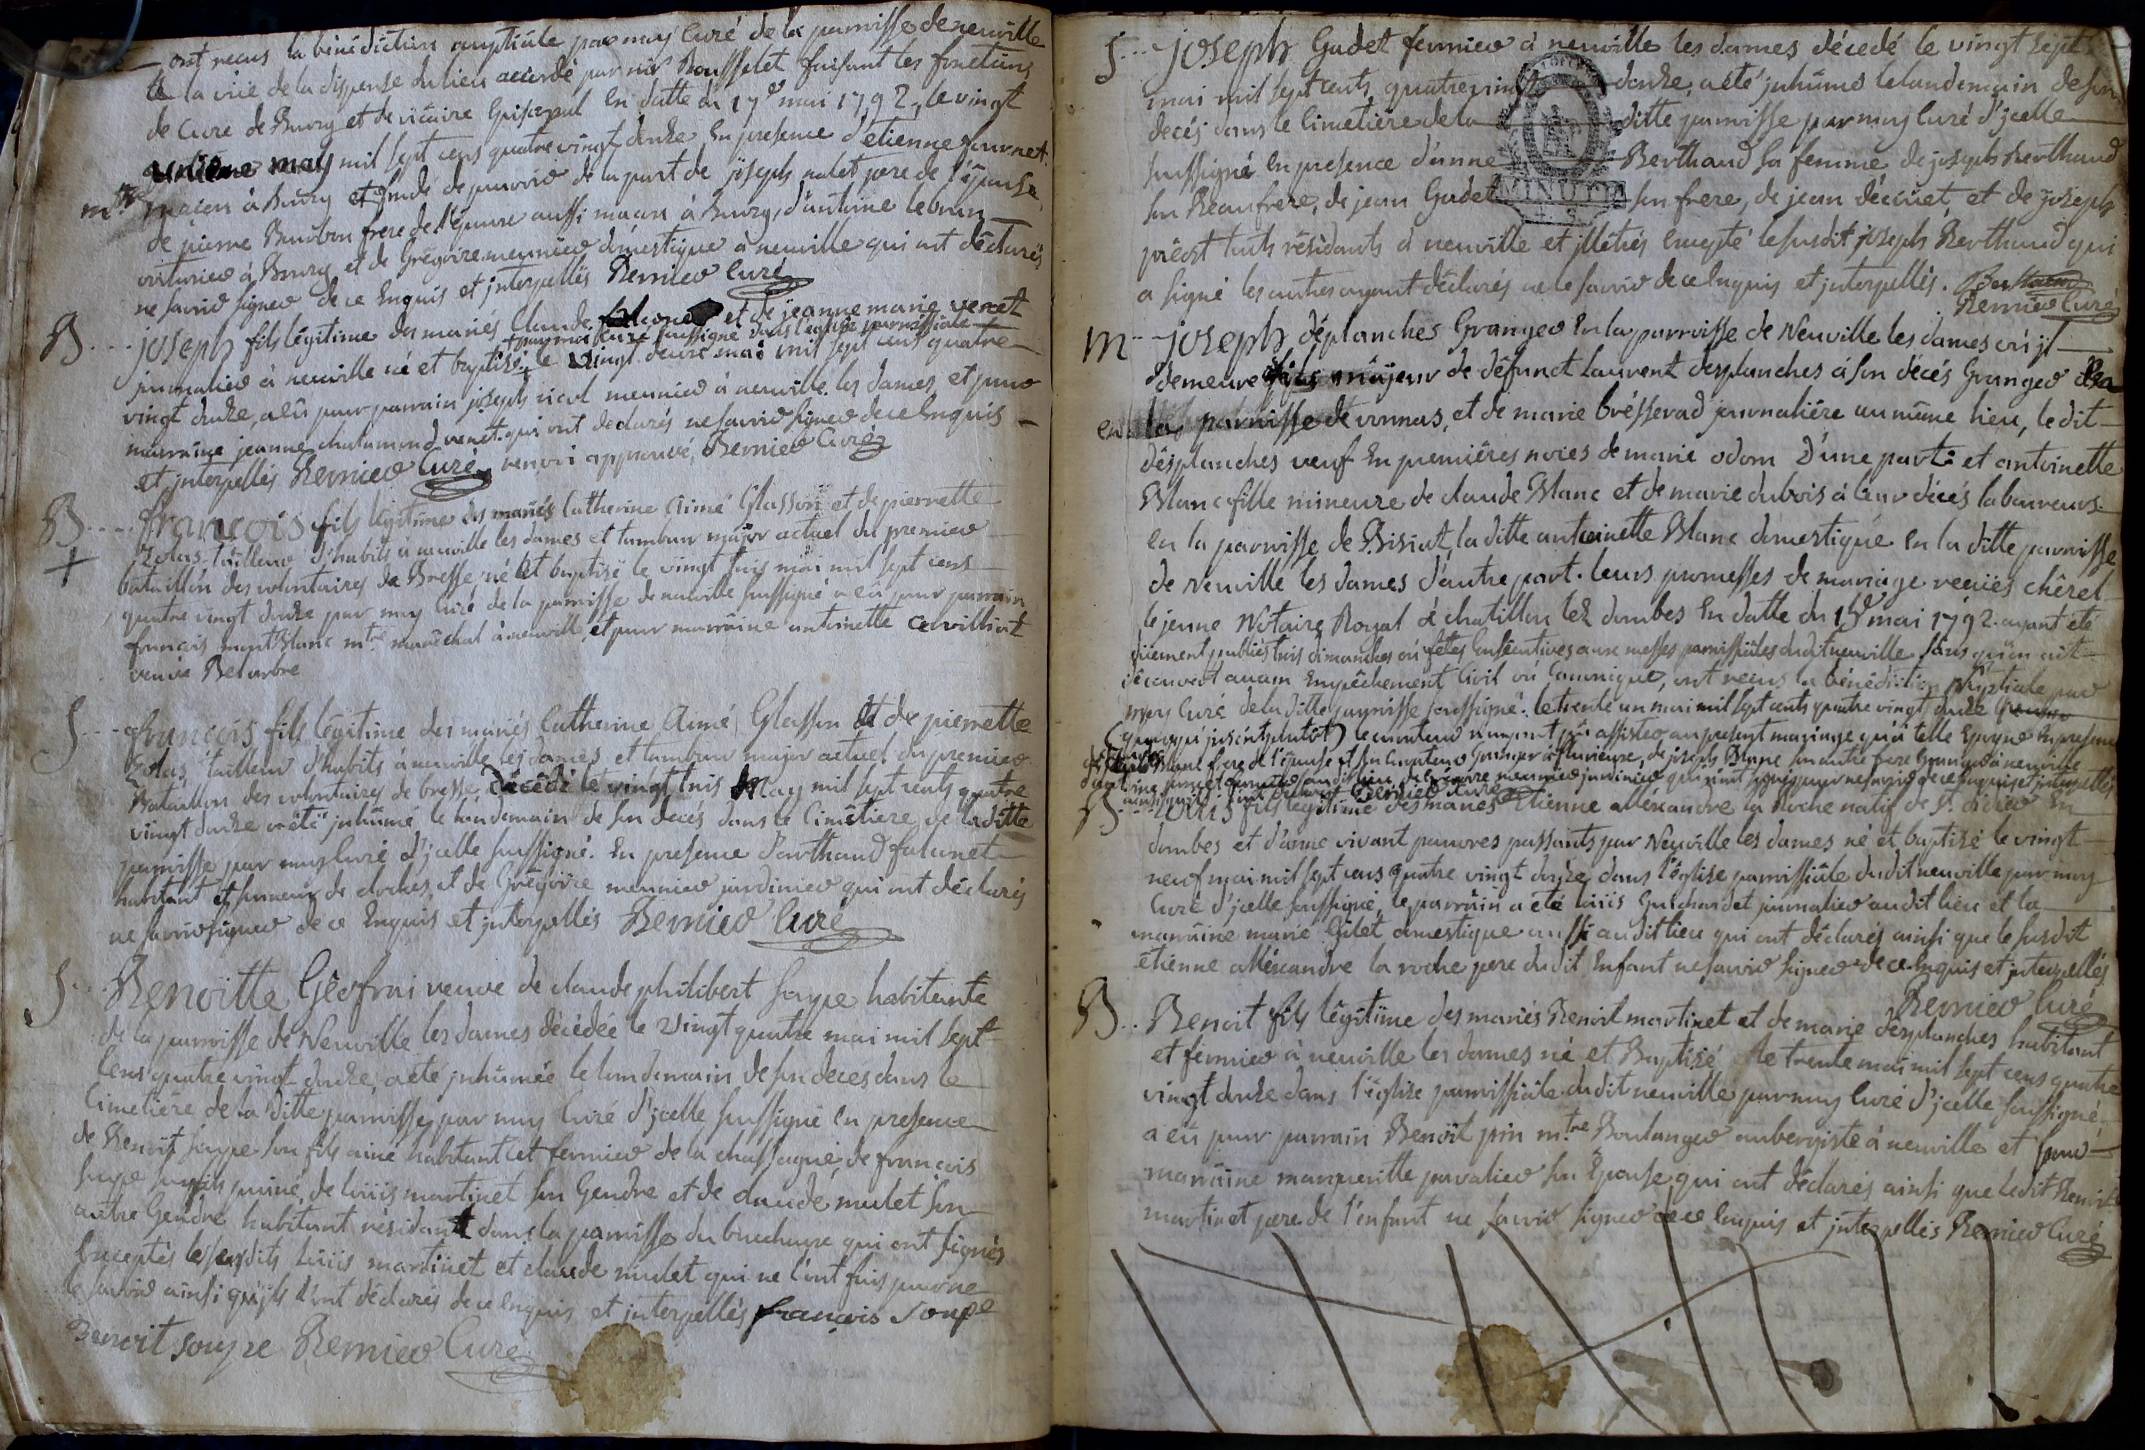 ont recus la bénédiction nuptiale par moy Curé de la parroisse de neuville
la vüe de la dispense du lieu accordé par mr Rousselet faisant les fonctions
de Curé de Bourg et de vicaire Episcopal En datte du 17e mai 1792, le vingt
may mil sept cens quatre vingt douze En presence d'etienne fournet
maçon à Bourg et fondé de pouvoir de la part de joseph nalet pere de l'épouse
de pierre Bourbon frere de l'épouse aussi maçon à Bourg, d'antoine lebrun
voiturier à Bourg et de Grégoire meunier domestique à neuville qui ont déclarés
ne savoir signer de ce Enquis et jnterpellés Bernier Curé
B... joseph fils légitime des mariés Claude et de jeanne marie venet
par moi Curé soussigné dans l'église parroissiale
journalier à neuville né et baptisé, le vingt deux mai mil sept cens quatre
vingt douze, a eü pour parrain joseph nicol meunier à neuville les dames, et pour
marraine jeanne chalumond venet qui ont declarés ne savoir signer de ce Enquis
et jnterpellés Bernier Curé renvoi approuvé, Bernier Curé
B... françois fils légitime des mariés Catherine Aimé Glasson et de pierrette
+ Zolas tailleur d'habits à neuville les dames et tambour major actuel du premier
bataillon des volontaires de Bresse, né et baptisé le vingt trois mai mil sept cens
quatre vingt douze par moy Curé de la parroisse de neuville soussigné a eü pour parrain
françois mont Blanc mtre maréchal à neuville et pour marraine antoinette
veuve Belarbre
S... françois fils légitime des mariés Catherine Aimé Glasson et de pierrette
Zolas, tailleur d'habits à neuville les dames et tambour major actuel du premier
Bataillon des volontaires de bresse, décédé le vingt trois May mil sept cents quatre
vingt douze a été jnhumé le landemain de son decés dans le Cimetiére de la ditte
parroisse par moy Curé d'jcelle soussigné. En presence d'arthaud falconet
habitant et sonneur de cloches, et de Grégoire meunier jardinier qui ont déclarés
ne savoir signer de ce Enquis et jnterpellés Bernier Curé
S... Benoitte Géofrai veuve de claude philibert soupe habitante
de la parroisse de Neuville les dames décédée le vingt quatre mai mil sept
Cens quatre vingt douze, a eté jnhumée le landemain de son deces dans le
Cimetiére de la ditte parroisse, par moy Curé d'jcelle soussigné en presence
de Benoit soupe son fils ainé habitant et fermier de la chassagne de francois
soupe son fils puiné, de loüis martinet son Gendre et de claude mulet son
autre Gendre habitant résidant dans la parroisse du buchoux qui ont signés
Exceptés les susdits Loüis martinet et claude mulet qui ne l'ont fais pour ne
le savoir ainsi qu'jls l'ont déclarés de ce Enquis et jnterpellés françois soupe
Benoit soupe Bernier Curé
S... joseph Gadet fermier à neuville les dames décedé le vingt sept
mai mil sept cents quatre vingt douze, a eté jnhumé le landemain de son
decés dans le Cimetiére de la ditte parroisse par moy Curé d'jcelle
soussigné En presence d'anne Berthaud sa femme de joseph Berthaud
MINUTE
son Beaufrere, de jean Gadet son frere, de jean décinet, et de joseph
préost touts résidants à neuville et jllétrés Excepté le susdit joseph Berthaud qui
a signé les autres ayant déclarés ne le savoir de ce Enquis et jnterpellés. Berthaud
Bernier Curé
M... joseph déplanches Granger En la parroisse de Neuville les dames où jl
demeure fils majeur de défunct Laurent desplanches à son décés Granger
en la parroisse de vonnas, et de marie bresserad journaliére au même lieu, le dit
désplanches veuf En premiéres noces de marie odom D'une part: et antoinette
Blanc fille mineure de claude Blanc et de marie dubois à leur décés laboureurs
en la parroisse de Bisiat, la ditte antoinette Blanc domestique en la ditte parroisse
de Neuville les dames d'autre part. leurs promesses de mariage recües chérel
le jeune Notaire Royal à chatillon lez dombes En datte du mai 1792. ayant été
düement publiés trois dimanches où fêtes Consécutives aux messes parroissiales dudit neuville sans qu'on ait
découvert aucun Empéchement Civil où Canonique, ont recus la bénédiction Nuptiale par
moy Curé de la ditte parroisse soussigné. le trente un mai mil sept cents quatre vingt douze
le curateur n'ayant pû assister au present mariage En presence
Blanc frere de l'épouse et son Curateur Granger à fluirieux, de joseph Blanc son autre frere Granger à neuville
de Grégoire meunier jardinier qui n'ont signés pour ne savoir de ce Enquis et jnterpellés
Bernier Curé
B... Loüis fils légitime des mariés Etienne alléxandre la Roche natif de St didier En
dombes et d'anne vivant pauvres passants par Neuville les dames né et baptizé le vingt
neuf mai mil sept cens quatre vingt douze, dans l'église parroissiale dudit neuville par moy
Curé d'jcelle soussigné, le parrain a eté Loüis Guichardet journalier audit lieu et la
marraine marie Gilet domestique aussi audit lieu qui ont déclarés ainsi que le susdit
étienne alléxandre la roche pere dudit Enfant ne savoir signer de ce Enquis et jnterpellés
Bernier Curé
B... Benoit fils légitime des mariés Benoit martinet et de marie désplanches habitant
et fermier à neuville les dames né et Baptizé le trente mai mil sept cens quatre
vingt douze dans l'église parroissiale dudit neuville par moy Curé d'jcelle soussigné
a eü pour parrain Benoit pin mtre Boulanger aubergiste à neuville et pour
marraine marguerite pavalier son Epouse qui ont déclarés ainsi que ledit Benoit
martinet pere de l'enfant ne savoir signer de ce Enquis et jnterpellés Bernier Curé